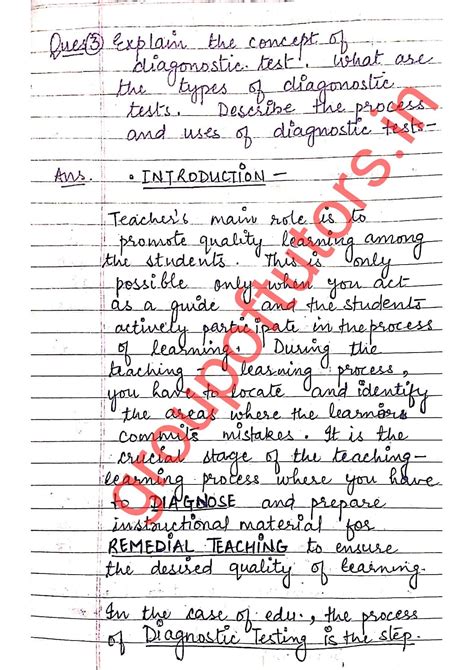 Ques③ Explain the concept of
diagonostic test. What are
the types of diagonostic
tests. Describe the process
and uses of diagnostic tests-
Ans. • INTRODUCTION -
Teacher's main role is to
promote quality learning among
the students. This is only
possible only when you act
as a guide and the students
actively participate in the process
of learning. During the
teaching - learning process,
you have to locate and identify
the areas where the learners
commits mistakes. It is the
crucial stage of the teaching-
learning process where you have
to DIAGNOSE and prepare
instructional material for
REMEDIAL TEACHING to ensure
the desired quality of learning.
In the case of edu., the process
of Diagnostic Testing is the step.
groupoftutors.in